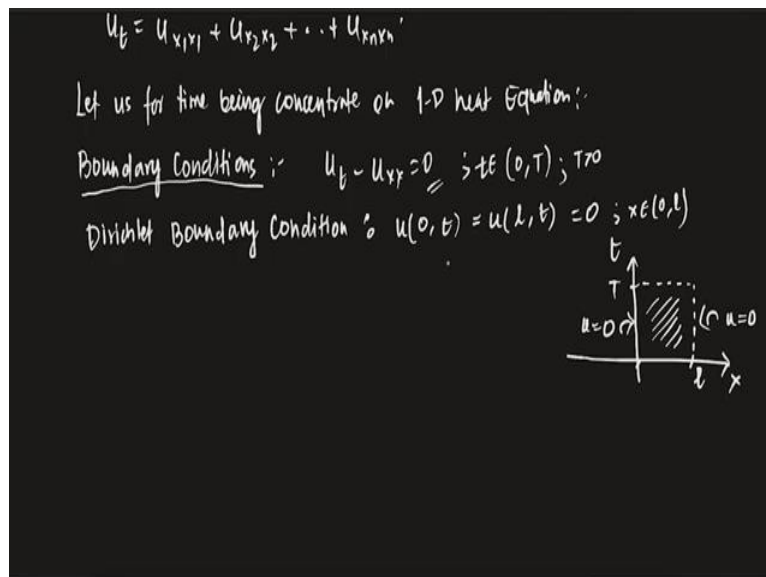 u_t = u_{x₁x₁} + u_{x₂x₂} + ... + u_{xₙxₙ}.
Let us for time being concentrate on 1-D heat Equation:-
Boundary Conditions :- u_t - u_{xx} = 0 ; t∈(0,T) ; T>0
Dirichlet Boundary Condition : u(0,t) = u(l,t) = 0 ; x∈(0,l)
t
T
u=0
u=0
l
x